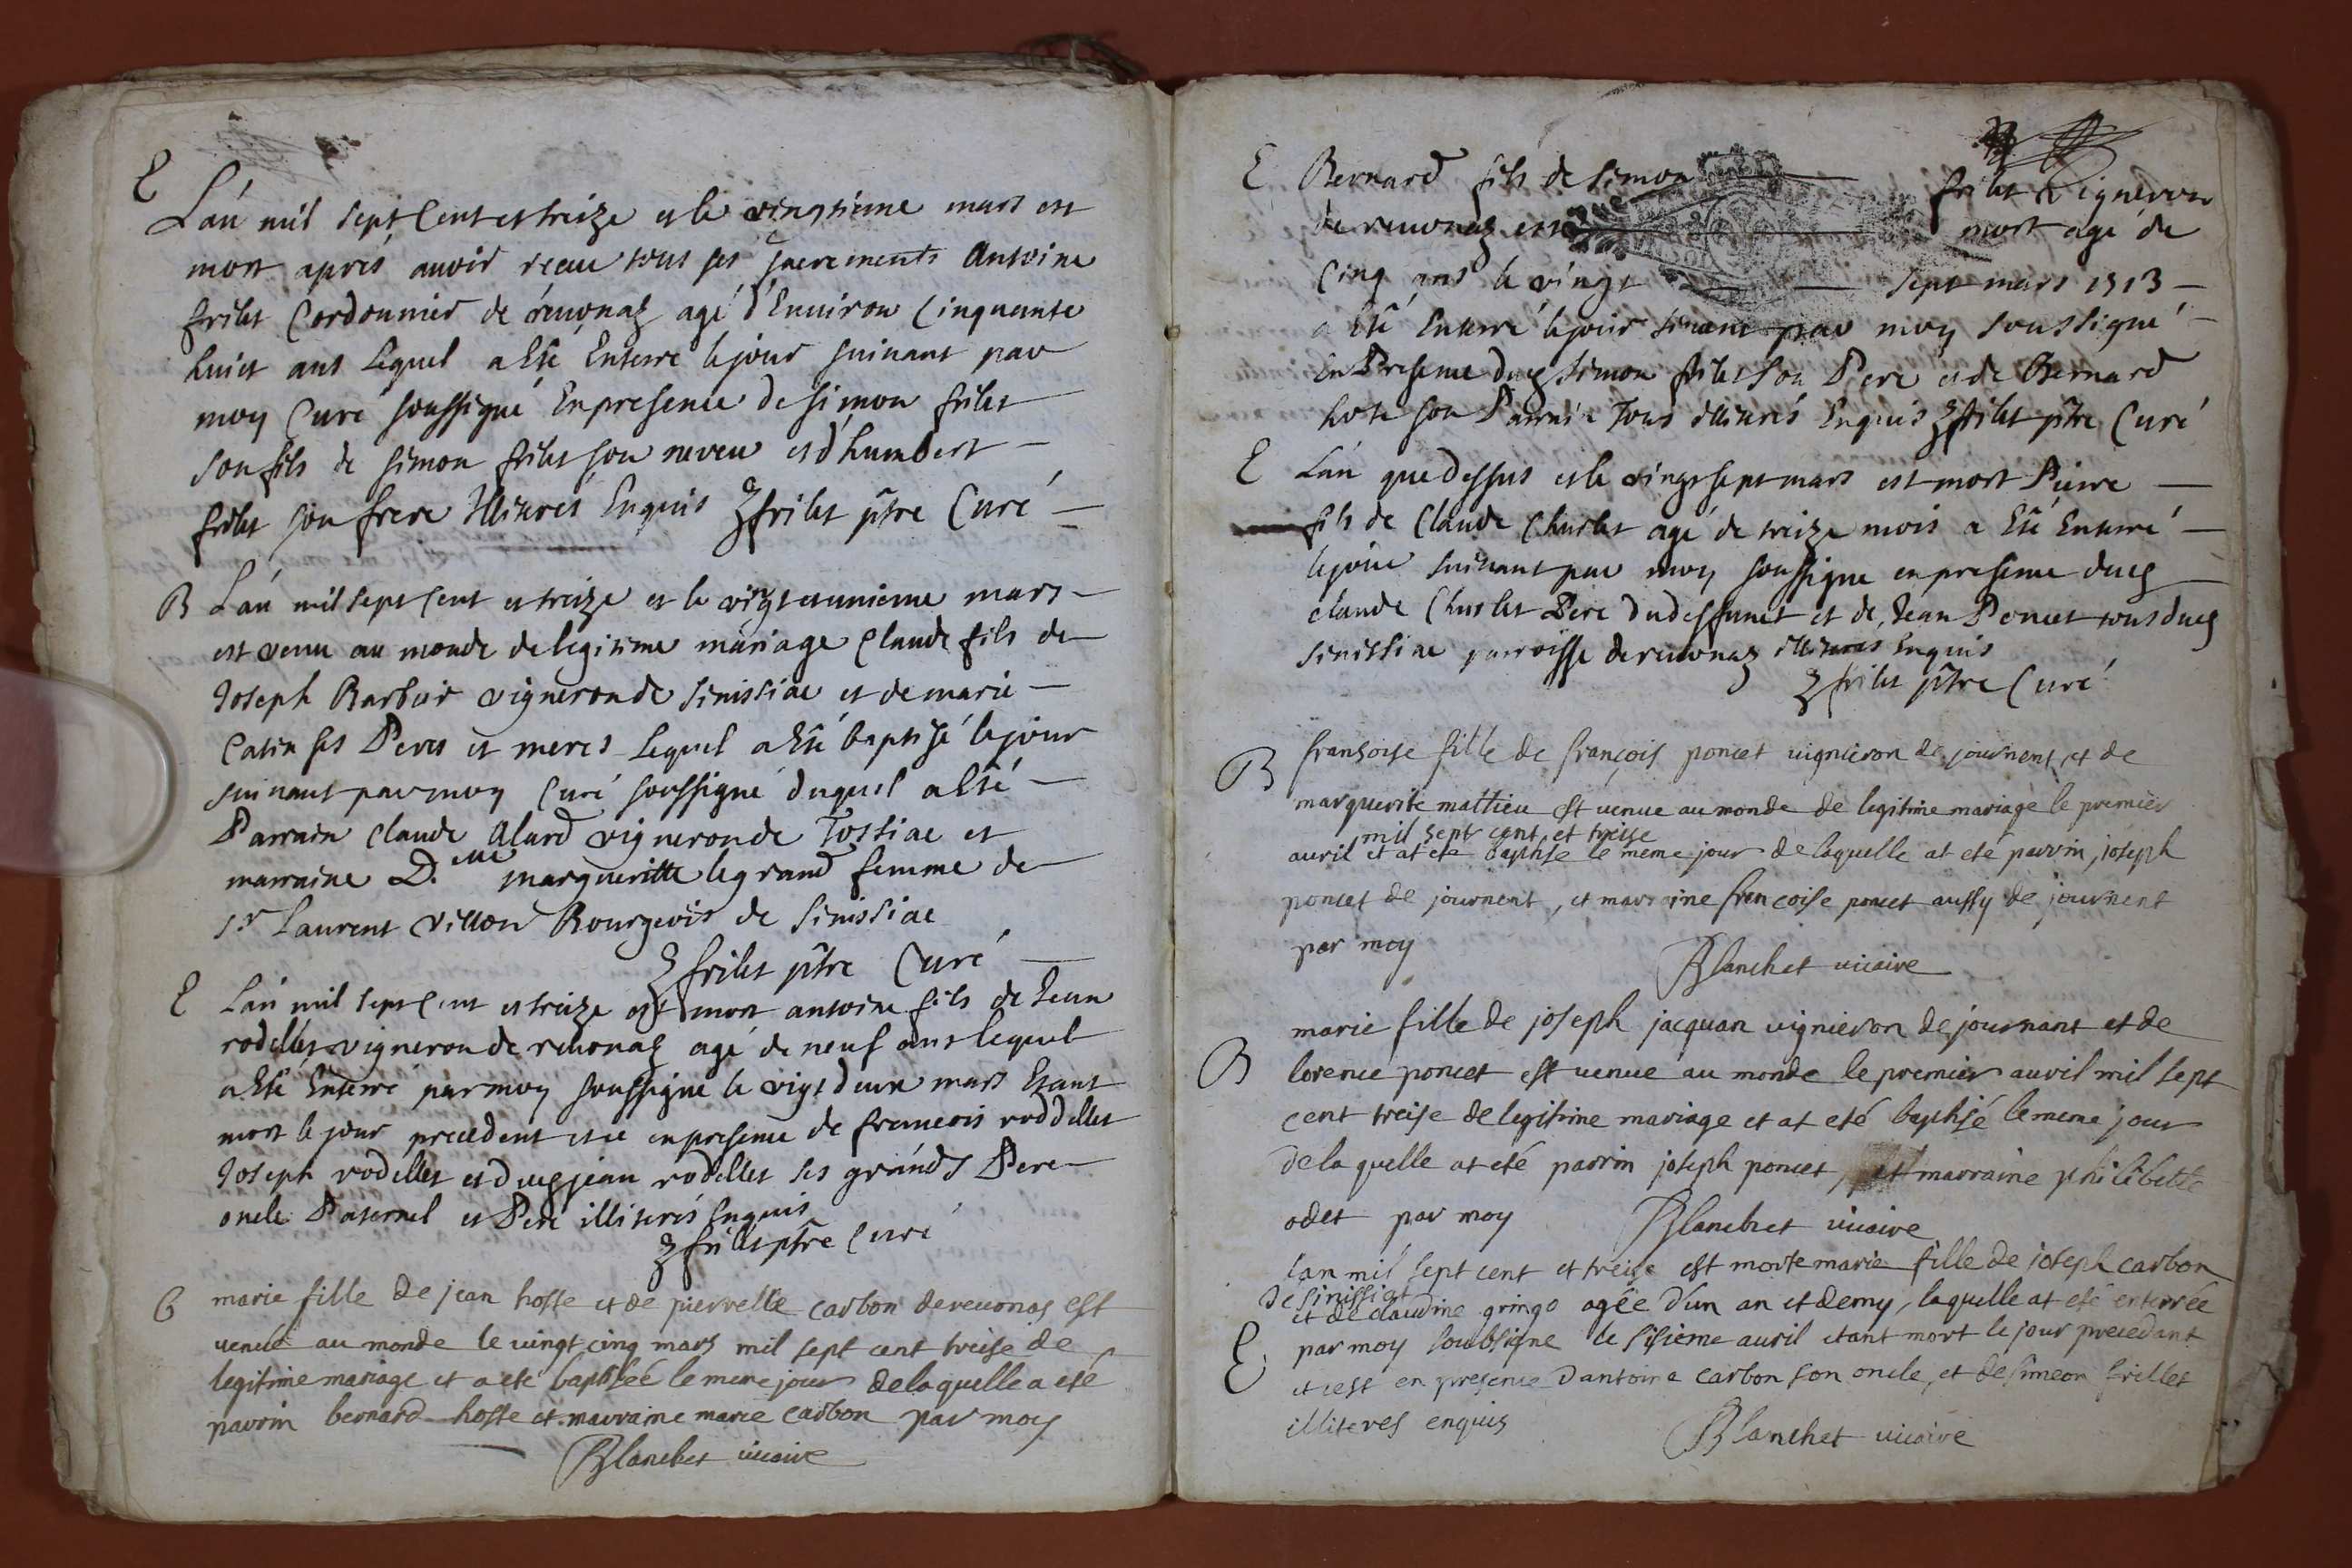 E
L'an mil sept Cent et treize et le vingtieme mars est
mort aprés auvoir receu tous ses sacrements Antoine
frilet Cordonnier de reuonaz agé d'Enuiron Cinquente
huict ans Lequel a Esté Enterré le jour suiuant par
moy Curé soussigné En presence de simon frilet
son fils de simon frilet son neveu et d'humbert
frilet son frere Illiterés Enquis frilet ptre Curé
B L'an mil sept Cent et treize et le vingt et unieme mars
est venu au monde de legitime mariage Claude fils de
Joseph Barbier vigneron de simissiae et de marie
Catin ses Peres et meres Lequel a Esté baptisé le jour
suiuant par moy Curé soussigné duquel a Esté
Parrain Claude Alard vigneron de Tossiae et
marraine D.elle margueritte legrand femme de
sr Laurent Villon Bourgeois de simissiae
frilet ptre Curé
E L'an mil sept Cent et treize est mort antoine fils de Jean
rodillet vigneron de reuonaz agé de neuf ans lequel
a Esté Enterré par moy soussigné le vigt deux mars Etant
mort le jour precedent et ce en presence de francois roddillet
Joseph rodillet et duq jean rodillet ses grands Pere
oncle Paternel et Pere illiterés Enquis
frilet ptre Curé
B marie fille de jean hoste et de pierrette carbon de reuonas est
venue au monde le vingt cinq mars mil sept cent treise de
legitime mariage et a eté baptisée le meme jour de laquelle a eté
parrin bernard hoste et marraine marie carbon par moy
Blanchet vicaire
E Bernard fils de simon frilet vigneron
de reuonaz est mort agé de
Cinq ans le vingt sept mars 1713
a Esté Enterré le jour suiuant par moy soussigné
En Presence duq simon frilet son Pere et de Bernard
hote son Parrain Tous illiterés Enquis frilet ptre Curé
E L'an que dessus et le vingt sept mars est mort Pierre
fils de Claude Churlet agé de treize mois a Esté Enterré
le jour suiuant par moy soussigné en presence duq
claude Churlet Pere du deffunct et de Jean Poncet tous duq
simissiae parroisse de reuonaz illiterés Enquis
frilet ptre Curé
B fransoise fille de françois poncet vignieron de journent, et de
marguerite mattieu est venue au monde de legitime mariage le premier
mil sept cent et treise
auril et at eté baptise le meme jour de laquelle at eté parrin, joseph
poncet de journent, et marraine francoise poncet aussy de journent
par moy
Blanchet vicaire
B marie fille de joseph jacquan vignieron de journant et de
lorence poncet est venue au monde le premier auril mil sept
cent treise de legitime mariage et at eté baptisé le meme jour
de la quelle at eté parrin joseph poncet, et marraine philibette
odet par moy Blanchet vicaire
l'an mil sept cent et treise est morte marie fille de joseph carbon
de simissiat
et de claudine gringo agée d'un an et demy, laquelle at eté enterrée
E par moy soubsigné le sisieme auril etant mort le jour precedant
et cest en presence d'antoine carbon son oncle, et de simeon frillet
illiteres enquis
Blanchet vicaire